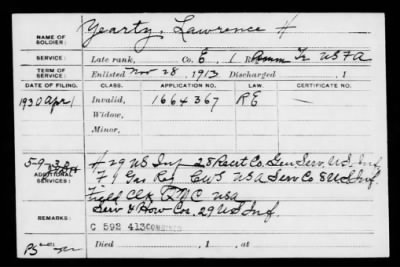 NAME OF SOLDIER: Yearty, Lawrence H
SERVICE: Late rank, Co. E, 1 Amm Tr USFA
TERM OF SERVICE: Enlisted Nov 28, 1913 Discharged , 1
DATE OF FILING. CLASS. APPLICATION NO. LAW. CERTIFICATE NO.
1930 Apr 1 Invalid, 1664367 RE
Widow,
Minor,
5-9-30 H 29 US Inf 28 Recrt Co. Gen Serv. U.S. Inf.
ADDITIONAL SERVICES: F 1 Gas Reg CWS USA Serv Co 8 US Inf.
Field Clk QMC USA
Serv & How Cos. 29 US Inf.
REMARKS: C 592 413
Died , 1 , at